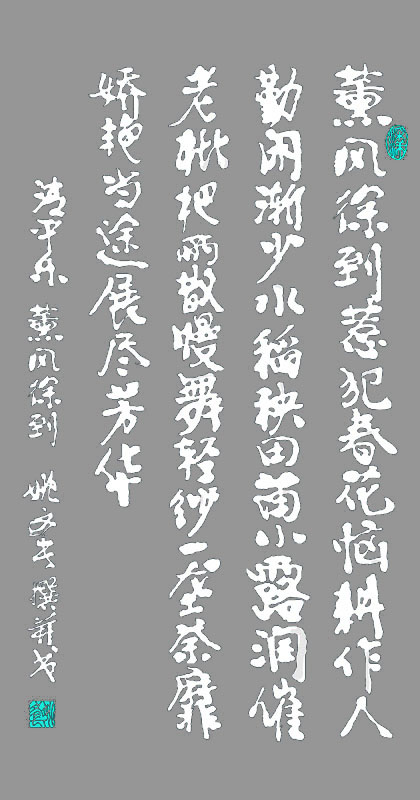 薰风徐到惹犯春花恼耕作人
勤闲渐少水稻秧田苗小露润催
老枇杷雨散慢舞轻纱一垄荼靡
娇艳当途展尽芳华
清平乐 薰风徐到 姚文 撰并书